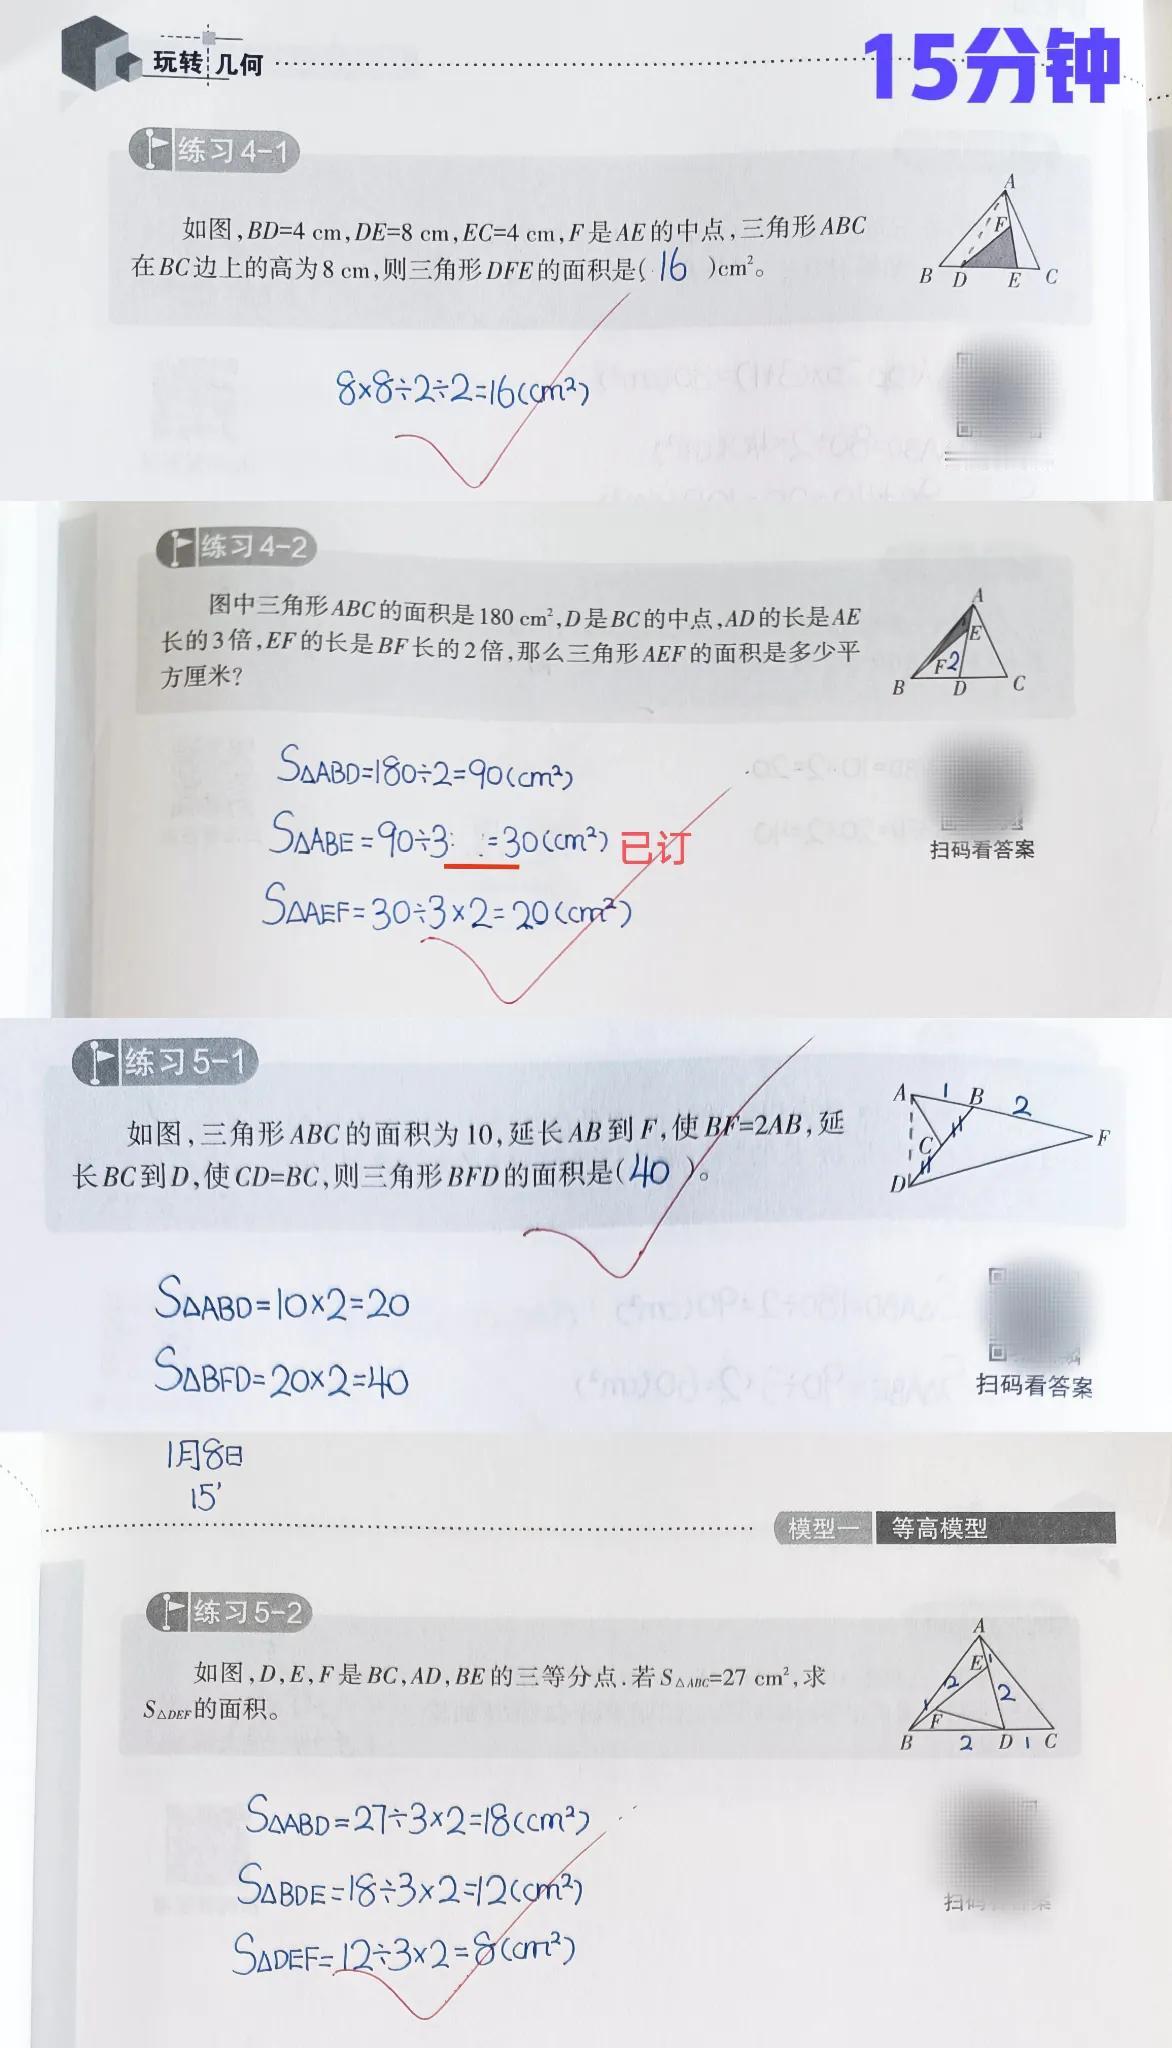 玩转几何
15分钟
练习4-1
A
F
B D E C
如图,BD=4 cm,DE=8 cm,EC=4 cm,F是AE的中点,三角形ABC
在BC边上的高为8 cm,则三角形DFE的面积是(16)cm²。
8×8÷2÷2=16(cm²)
练习4-2
图中三角形ABC的面积是180 cm²,D是BC的中点,AD的长是AE
长的3倍,EF的长是BF长的2倍,那么三角形AEF的面积是多少平
方厘米?
A
E
F 2
B D C
S△ABD=180÷2=90(cm²)
S△ABE=90÷3=30(cm²) 已订
S△AEF=30÷3×2=20(cm²)
扫码看答案
练习5-1
如图,三角形ABC的面积为10,延长AB到F,使BF=2AB,延
长BC到D,使CD=BC,则三角形BFD的面积是(40)。
A 1 B 2
F
C
D
S△ABD=10×2=20
S△BFD=20×2=40
扫码看答案
1月8日
15'
模型一 等高模型
练习5-2
如图,D,E,F是BC,AD,BE的三等分点.若S△ABC=27 cm²,求
S△DEF的面积。
A
E 1
2 2
1 F
B 2 D 1 C
S△ABD=27÷3×2=18(cm²)
S△BDE=18÷3×2=12(cm²)
S△DEF=12÷3×2=8(cm²)
扫码